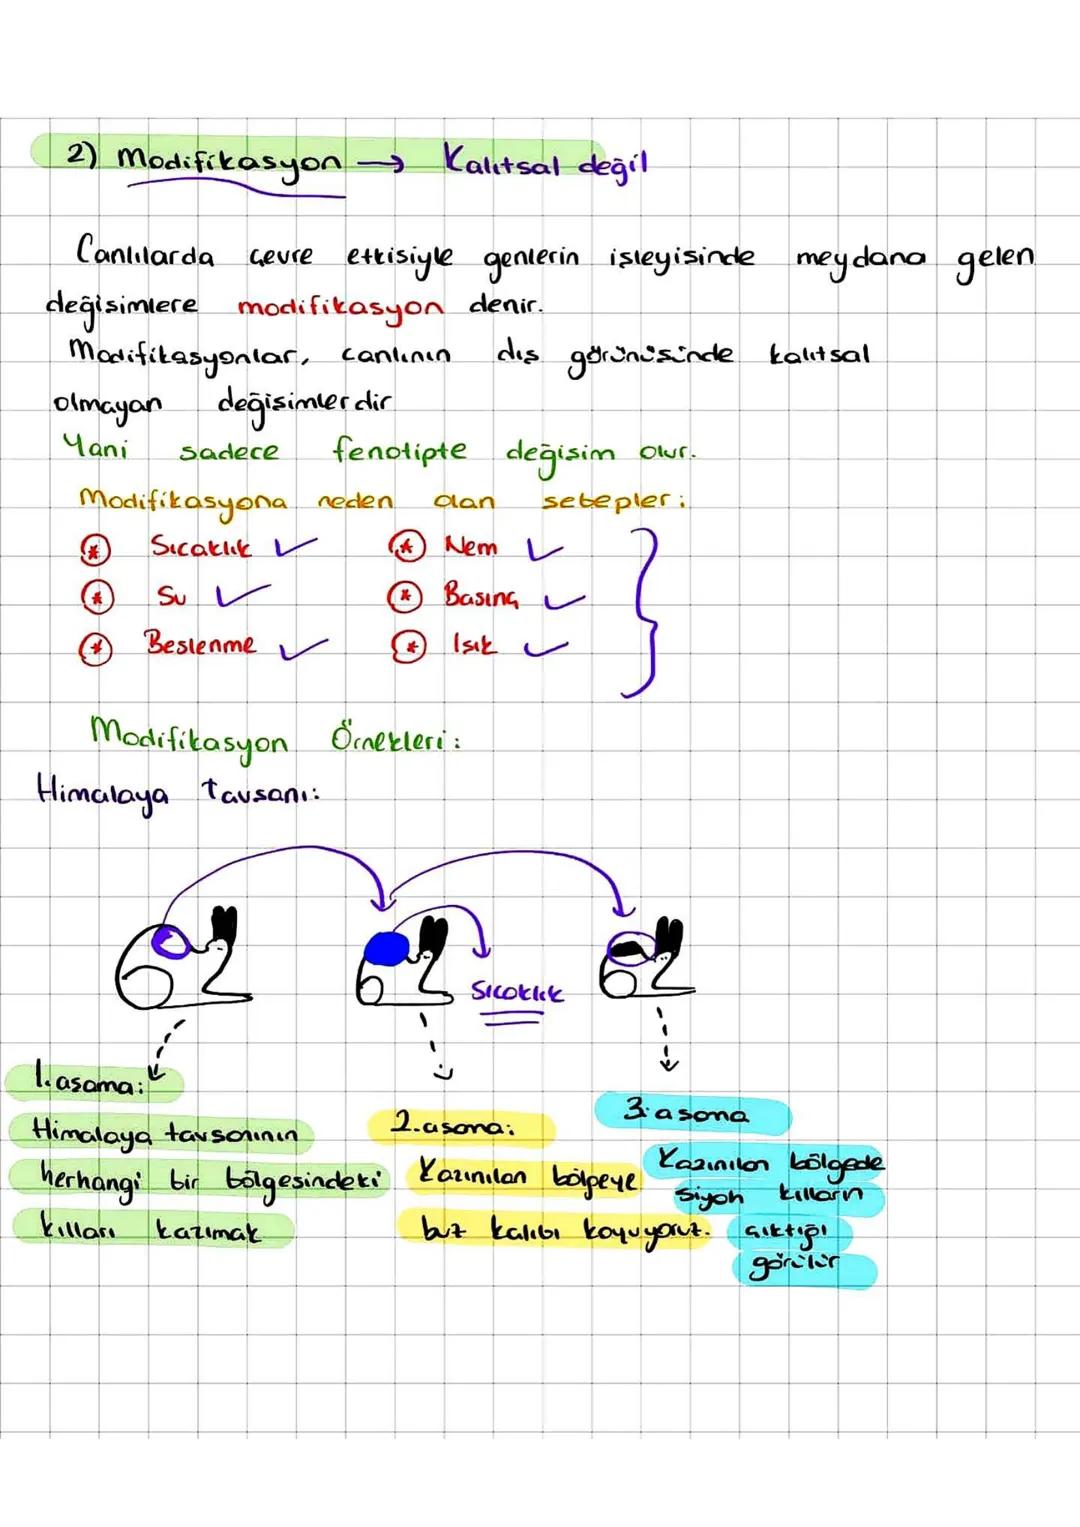 2) Modifikasyon → Kalıtsal değil
Canlılarda çevre etkisiyle genlerin işleyisinde meydana gelen
değisimlere modifikasyon denir.
Modifikasyonlar, canlının dış görünüsünde kalıtsal
olmayan değisimlerdir
Yani sadece fenotipte değisim olur.
Modifikasyona neden olan sebepler:
* Sıcaklık ✓ * Nem ✓
* Su ✓ * Basınç ✓
* Beslenme ✓ * Isık ✓
Modifikasyon Örnekleri:
Himalaya tavsanı:
Sıcaklık
1. asama:
Himalaya tavsanının
herhangi bir bölgesindeki
kılları kazımak
2. asama:
Kazınılan bölgeye
buz kalıbı koyuyoruz.
3. asama
Kazınılan bölgede
siyah kılların
çıktığı
görülür